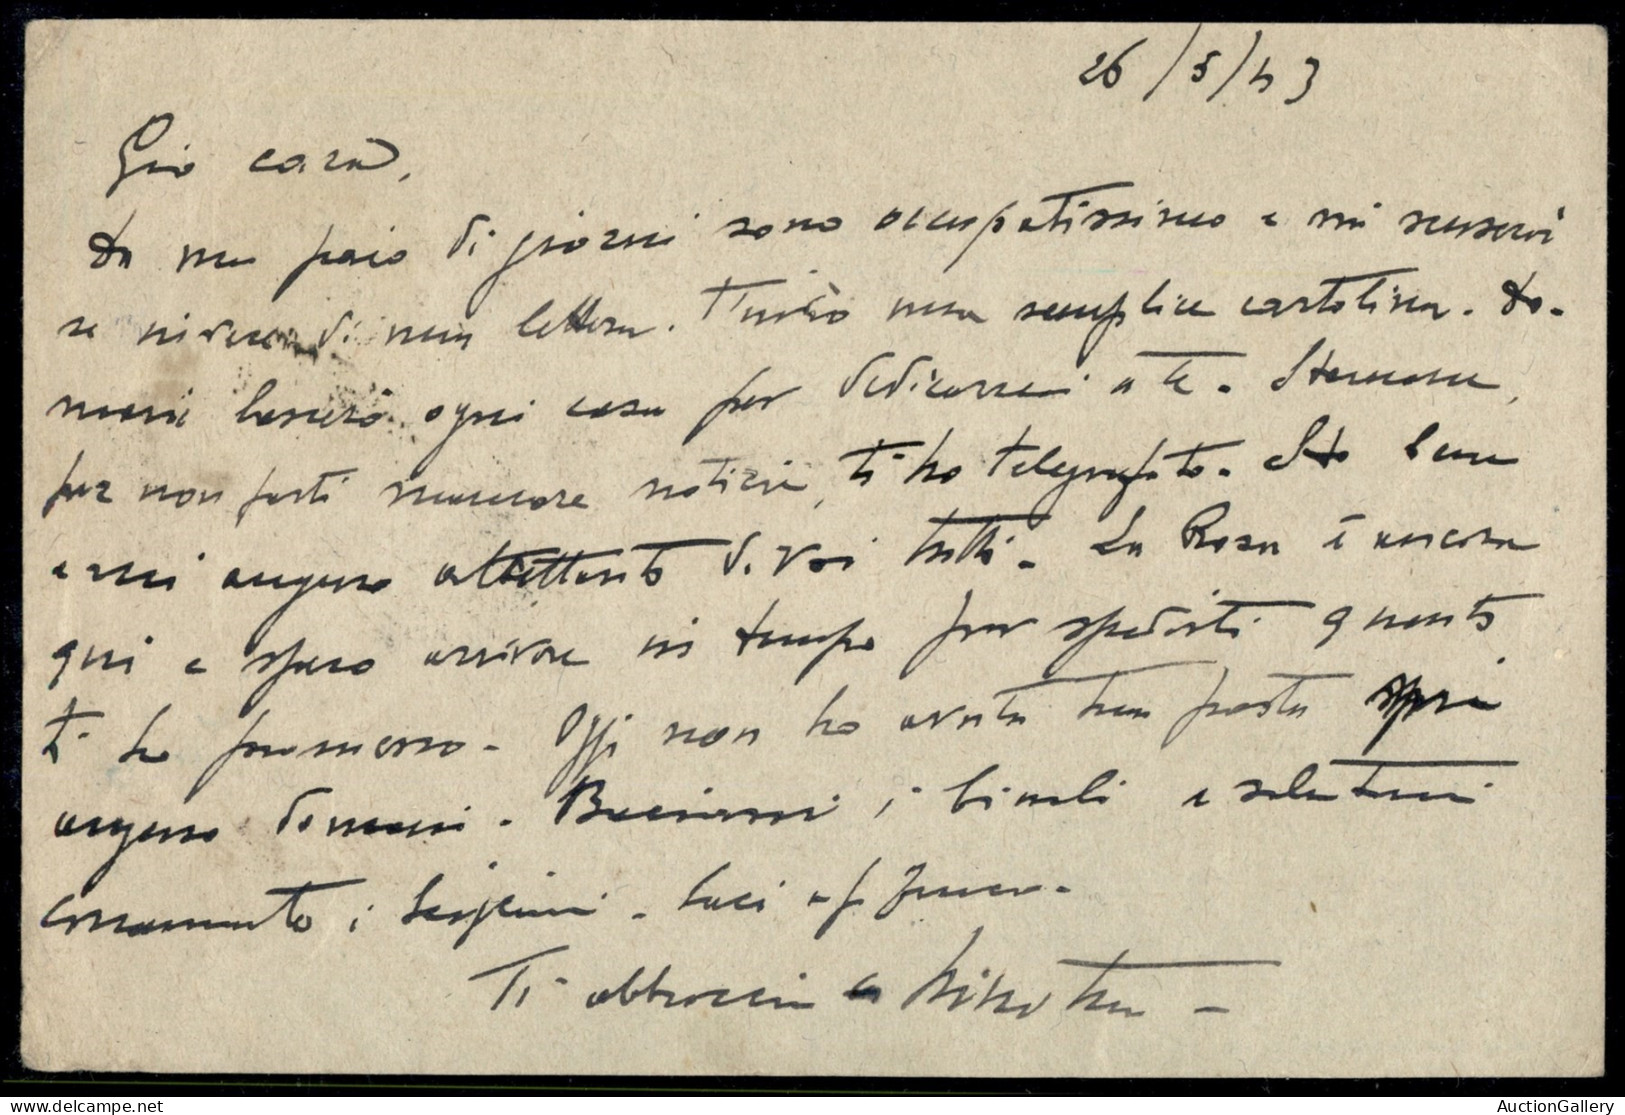 26/5/43
Gio cara,
da un paio di giorni sono occupatissimo e mi scuserai
se invece di una lettera. T'invio una semplice cartolina. Do-
mani lascerò ogni cosa per dedicarmi a te. Stamane,
per non farti mancare notizie, ti ho telegrafato. Sto bene
e mi auguro altrettanto di voi tutti. La Rosa è ancora
qui e spero arrivare in tempo per spedirti quanto
ti ho promesso. Oggi non ho avuta tua posta spero
auguro domani. Baciami i bimbi e salutami
caramente i
Ti abbraccia tuo
AuctionGallery